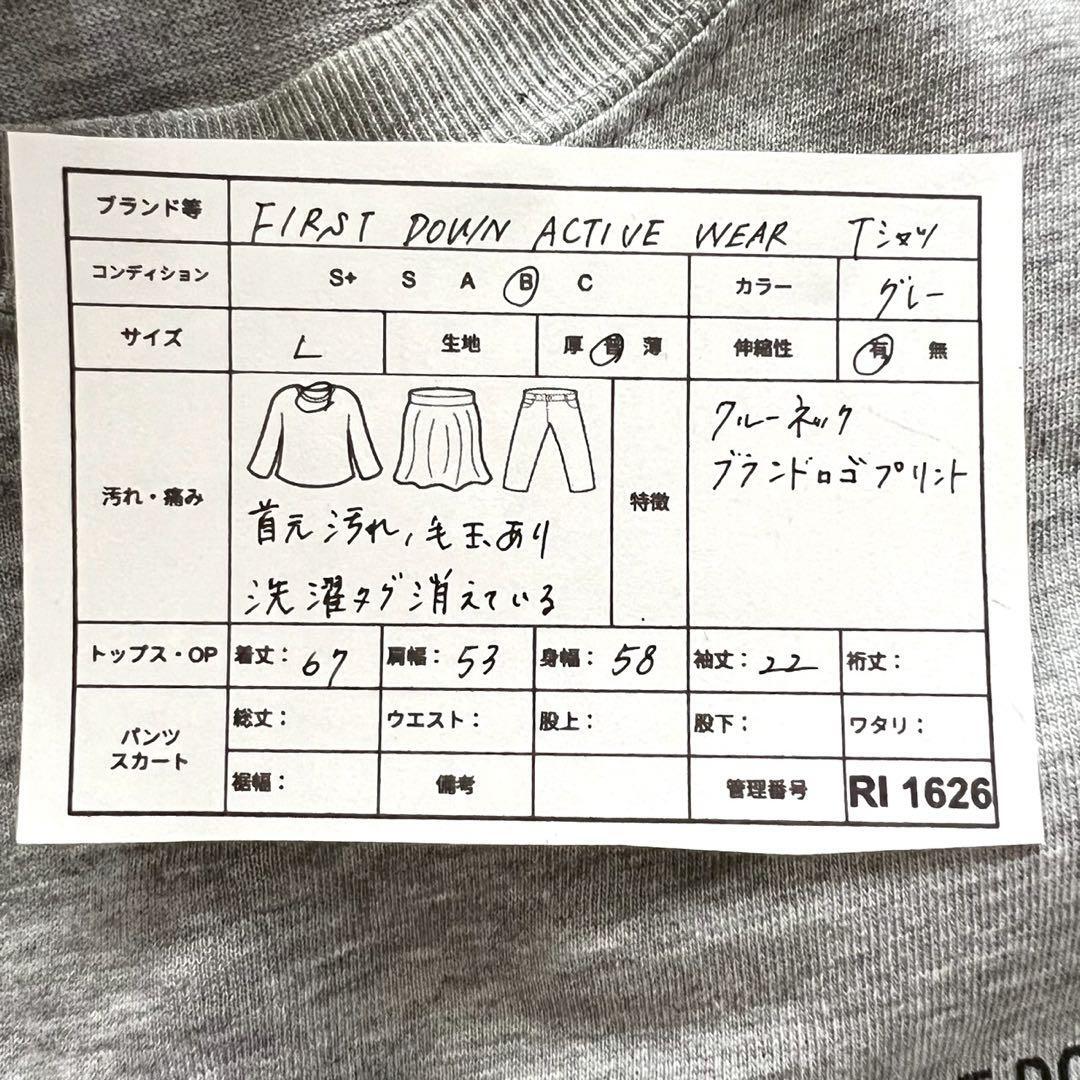 ブランド等 FIRST DOWN ACTIVE WEAR Tシャツ
コンディション S+ S A B C カラー グレー
サイズ L 生地 厚 普 薄 伸縮性 有 無
汚れ・痛み 首元汚れ、毛玉あり
洗濯タグ消えている
特徴 クルーネック
ブランドロゴプリント
トップス・OP 着丈：67 肩幅：53 身幅：58 袖丈：22 裄丈：
パンツ スカート 総丈： ウエスト： 股上： 股下： ワタリ：
裾幅： 備考 管理番号 RI 1626